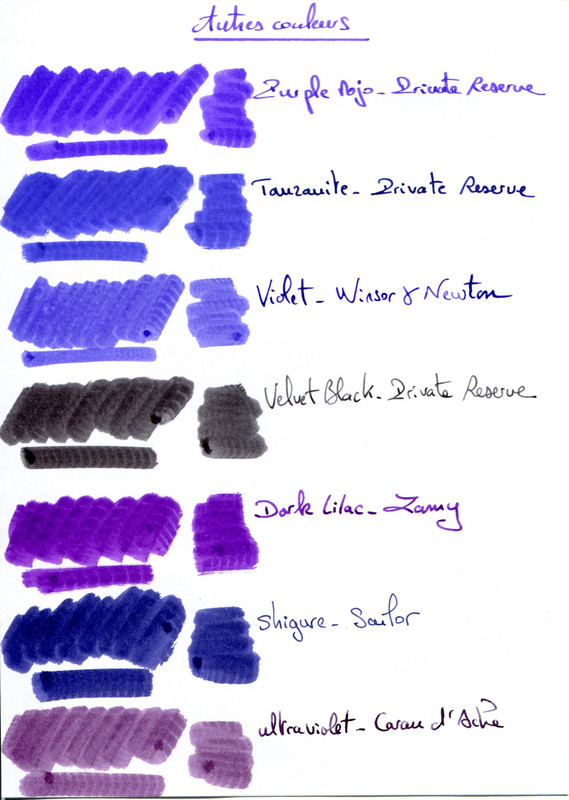 Autres couleurs
Purple Mojo - Private Reserve
Tanzanite - Private Reserve
Violet - Winsor & Newton
Velvet Black - Private Reserve
Dark Lilac - Lamy
Shigure - Sailor
ultraviolet - Caran d'Ache